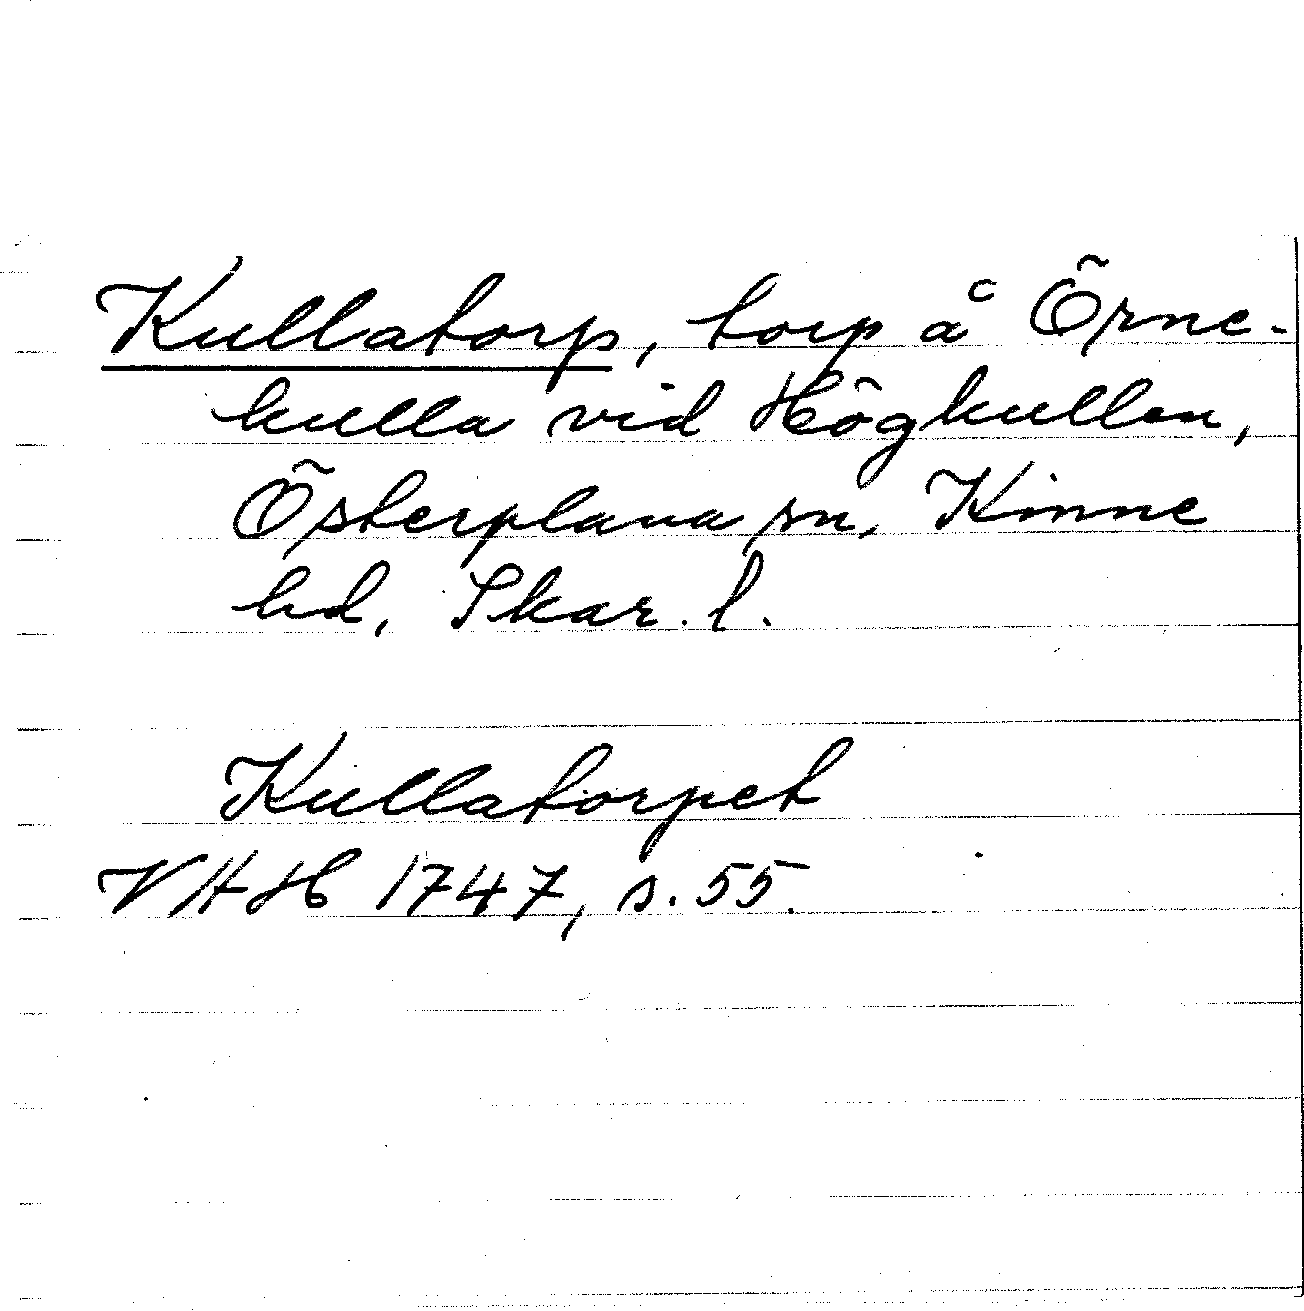 Kullatorp, torp å Örne-
kulla vid Högkullen,
Österplana sn, Kinne
hd, Skar. l.
Kullatorpet
VHH 1747, s. 55.